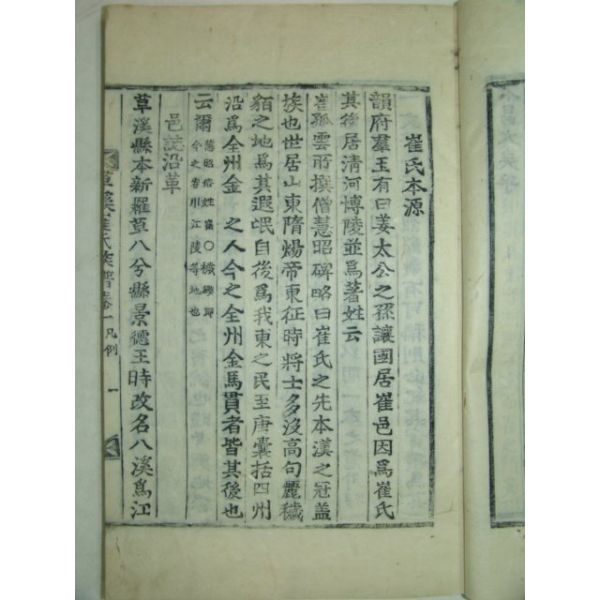 崔氏本源
韻府羣玉有曰姜太公之孫讓國居崔邑因爲崔氏
其後居清河博陵並爲著姓云
崔孤雲所撰僧慧昭碑略曰崔氏之先本漢之冠盖
埃也世居山東隋煬帝東征時將士多沒高句麗穢
貊之地爲其遐氓自後爲我東之民至唐囊括四州
沿爲全州金 之人今之全州金馬貫者皆其後也
云爾 ○ 江陵等地也
邑誌沿革
草溪縣本新羅草八兮縣景德王時改名八溪爲江
草溪崔氏族譜卷一 凡例 一